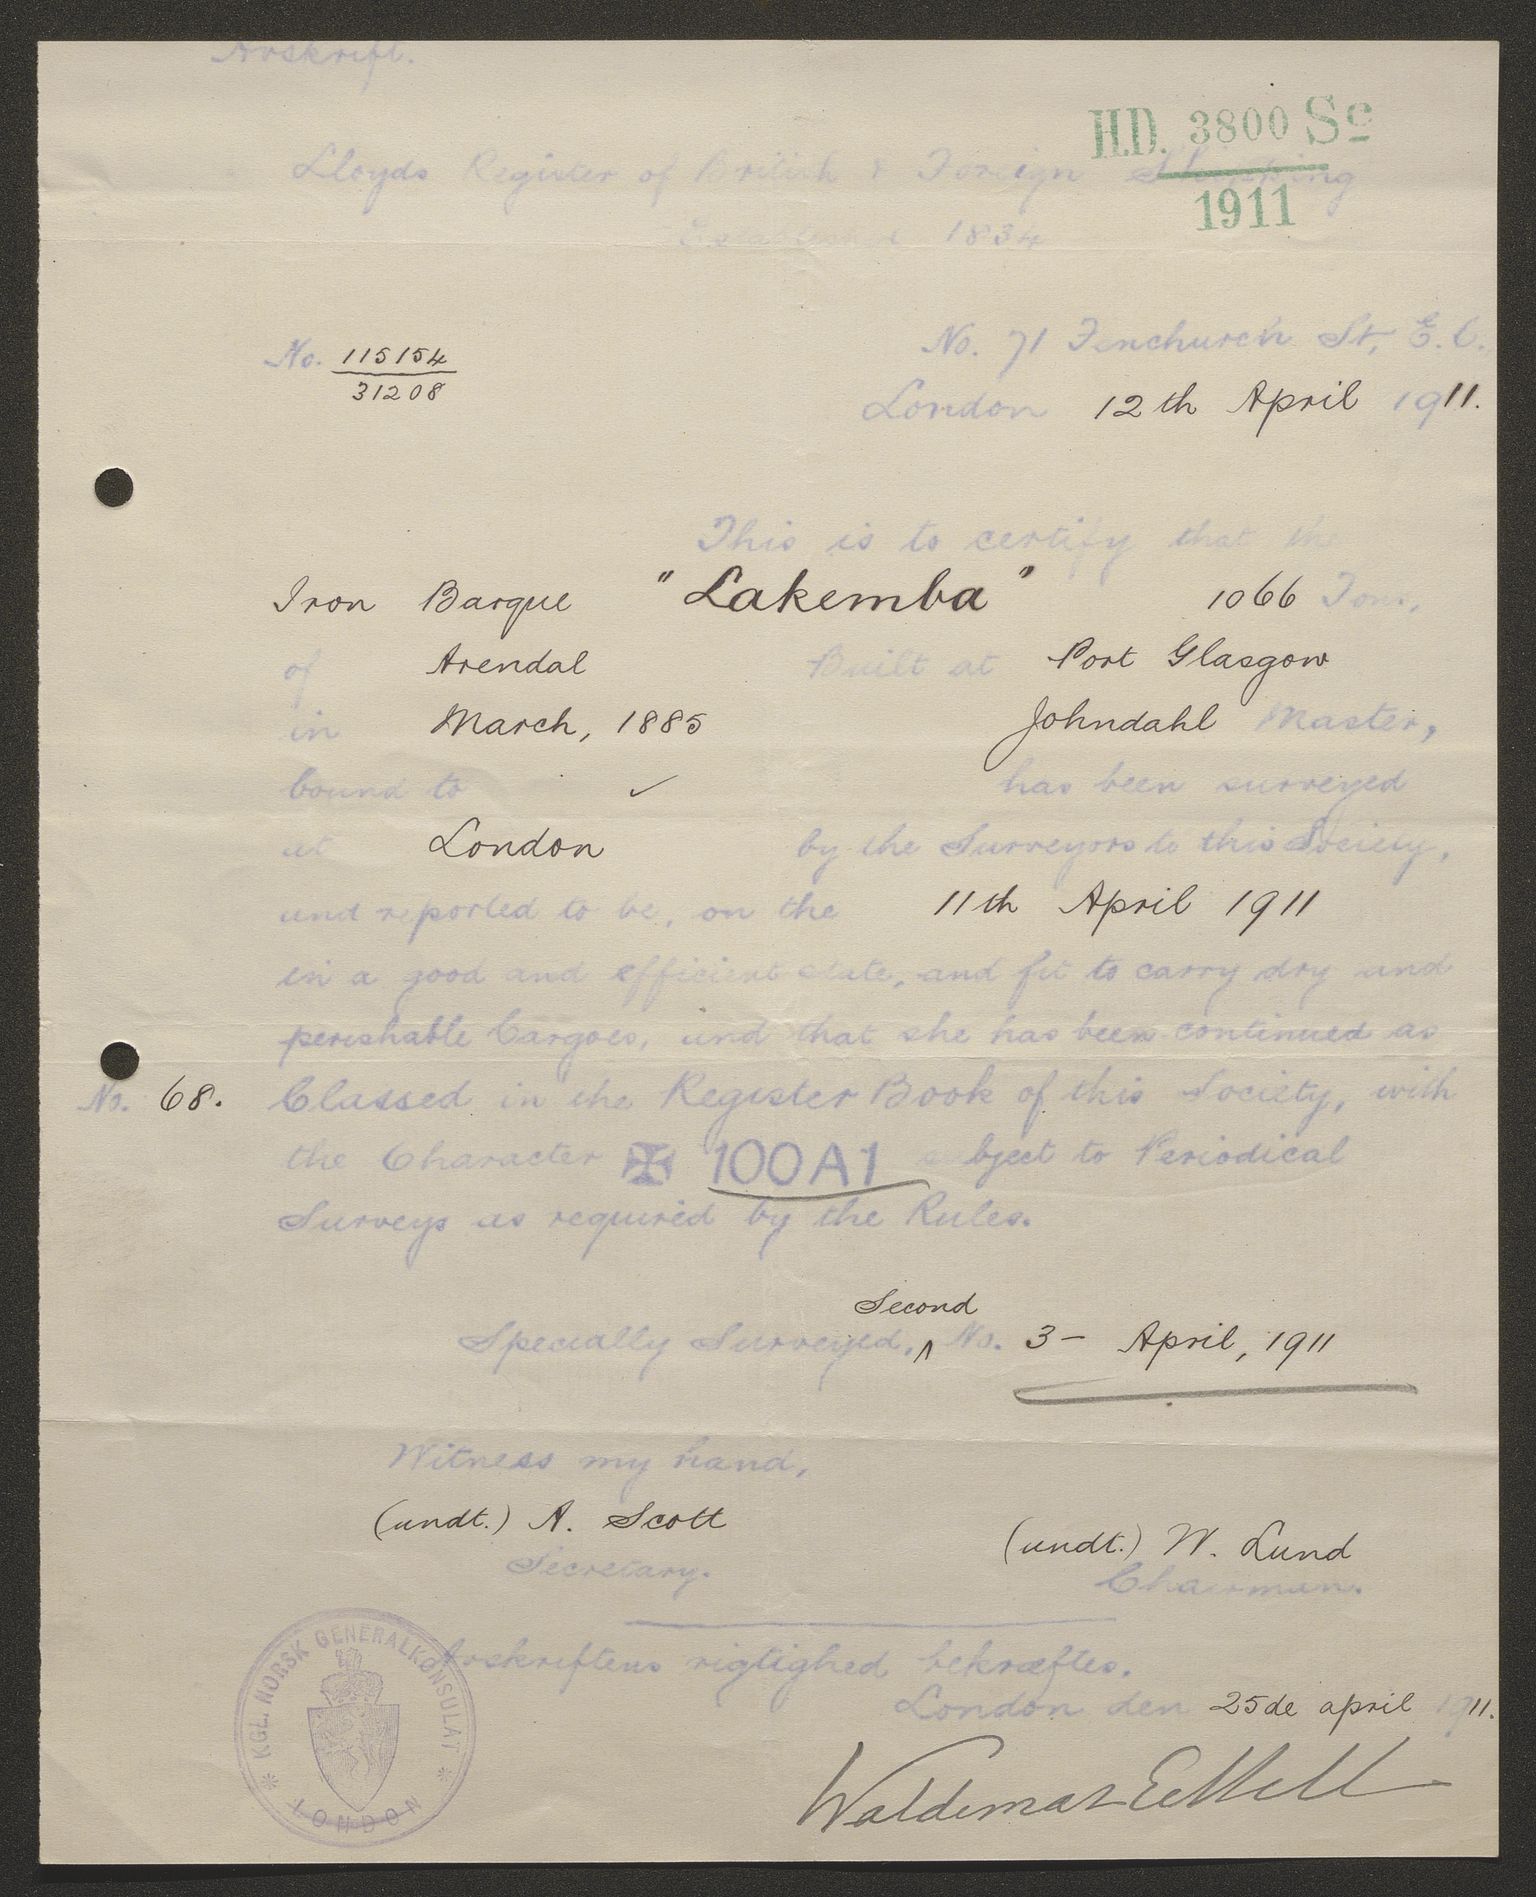 Avskrift.
H.D. 3800 Sc
1911
Lloyds Register of British & Foreign Shipping
Established 1834
No. 71 Fenchurch St, E.C.
No. 115154
31208
London 12th April 1911.
This is to certify that the
Iron Barque "Lakemba" 1066 Tons,
of Arendal Built at Port Glasgow
in March, 1885 Johndahl Master,
bound to ✓ has been surveyed
at London by the Surveyors to this Society,
and reported to be, on the 11th April 1911
in a good and efficient state, and fit to carry dry and
perishable Cargoes, and that she has been continued as
No. 68. Classed in the Register Book of this Society, with
the Character ✠ 100A1 subject to Periodical
Surveys as required by the Rules.
Second
Specially Surveyed, ∧ No. 3 - April, 1911
Witness my hand,
(undt.) A. Scott
(undt.) W. Lund
Secretary.
Chairman.
Avskriftens rigtighed bekræftes.
London den 25de april 1911.
Waldemar Eckell
KGL. NORSK GENERALKONSULAT
* LONDON *